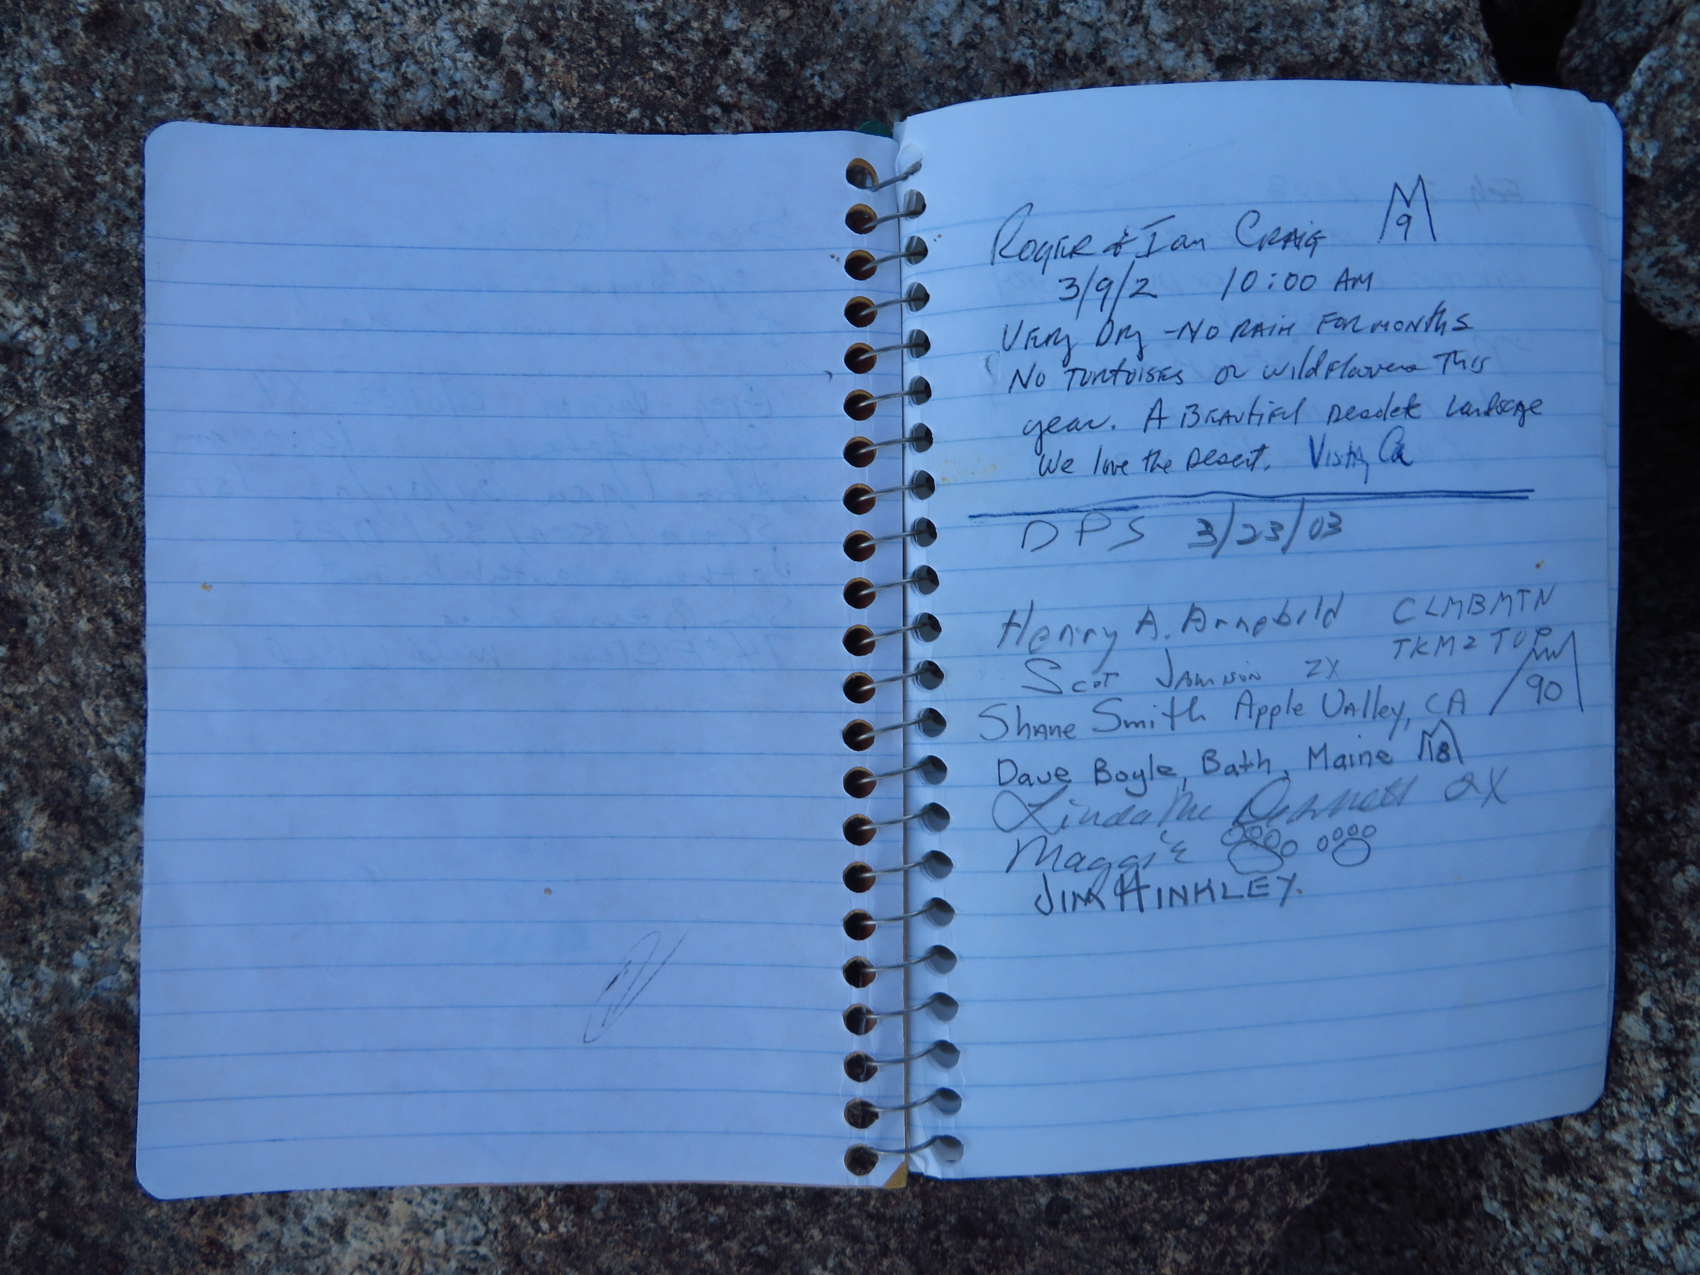 Roger & Ian Craig 9
3/9/2 10:00 AM
Very Dry - No rain for months
No Tortoises or wildflowers This
year. A Beautiful Desolate Landscape
We love the Desert. Vista, Ca
DPS 3/23/03
Henry A. Arnebold CLMBMTN
TKM2TOP
Scot Jamison 2X
Shane Smith Apple Valley, CA 90
Dave Boyle, Bath, Maine 8
Linda Mc Dermott 2X
Maggie
JIM HINKLEY.